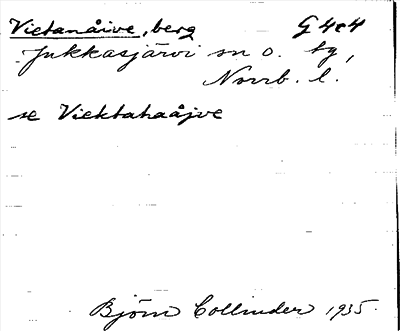 Vietanåive, berg G 4e4
Jukkasjärvi sn o. tg,
Norrb. l.
se Viektahaåjve
Björn Collinder 1935.